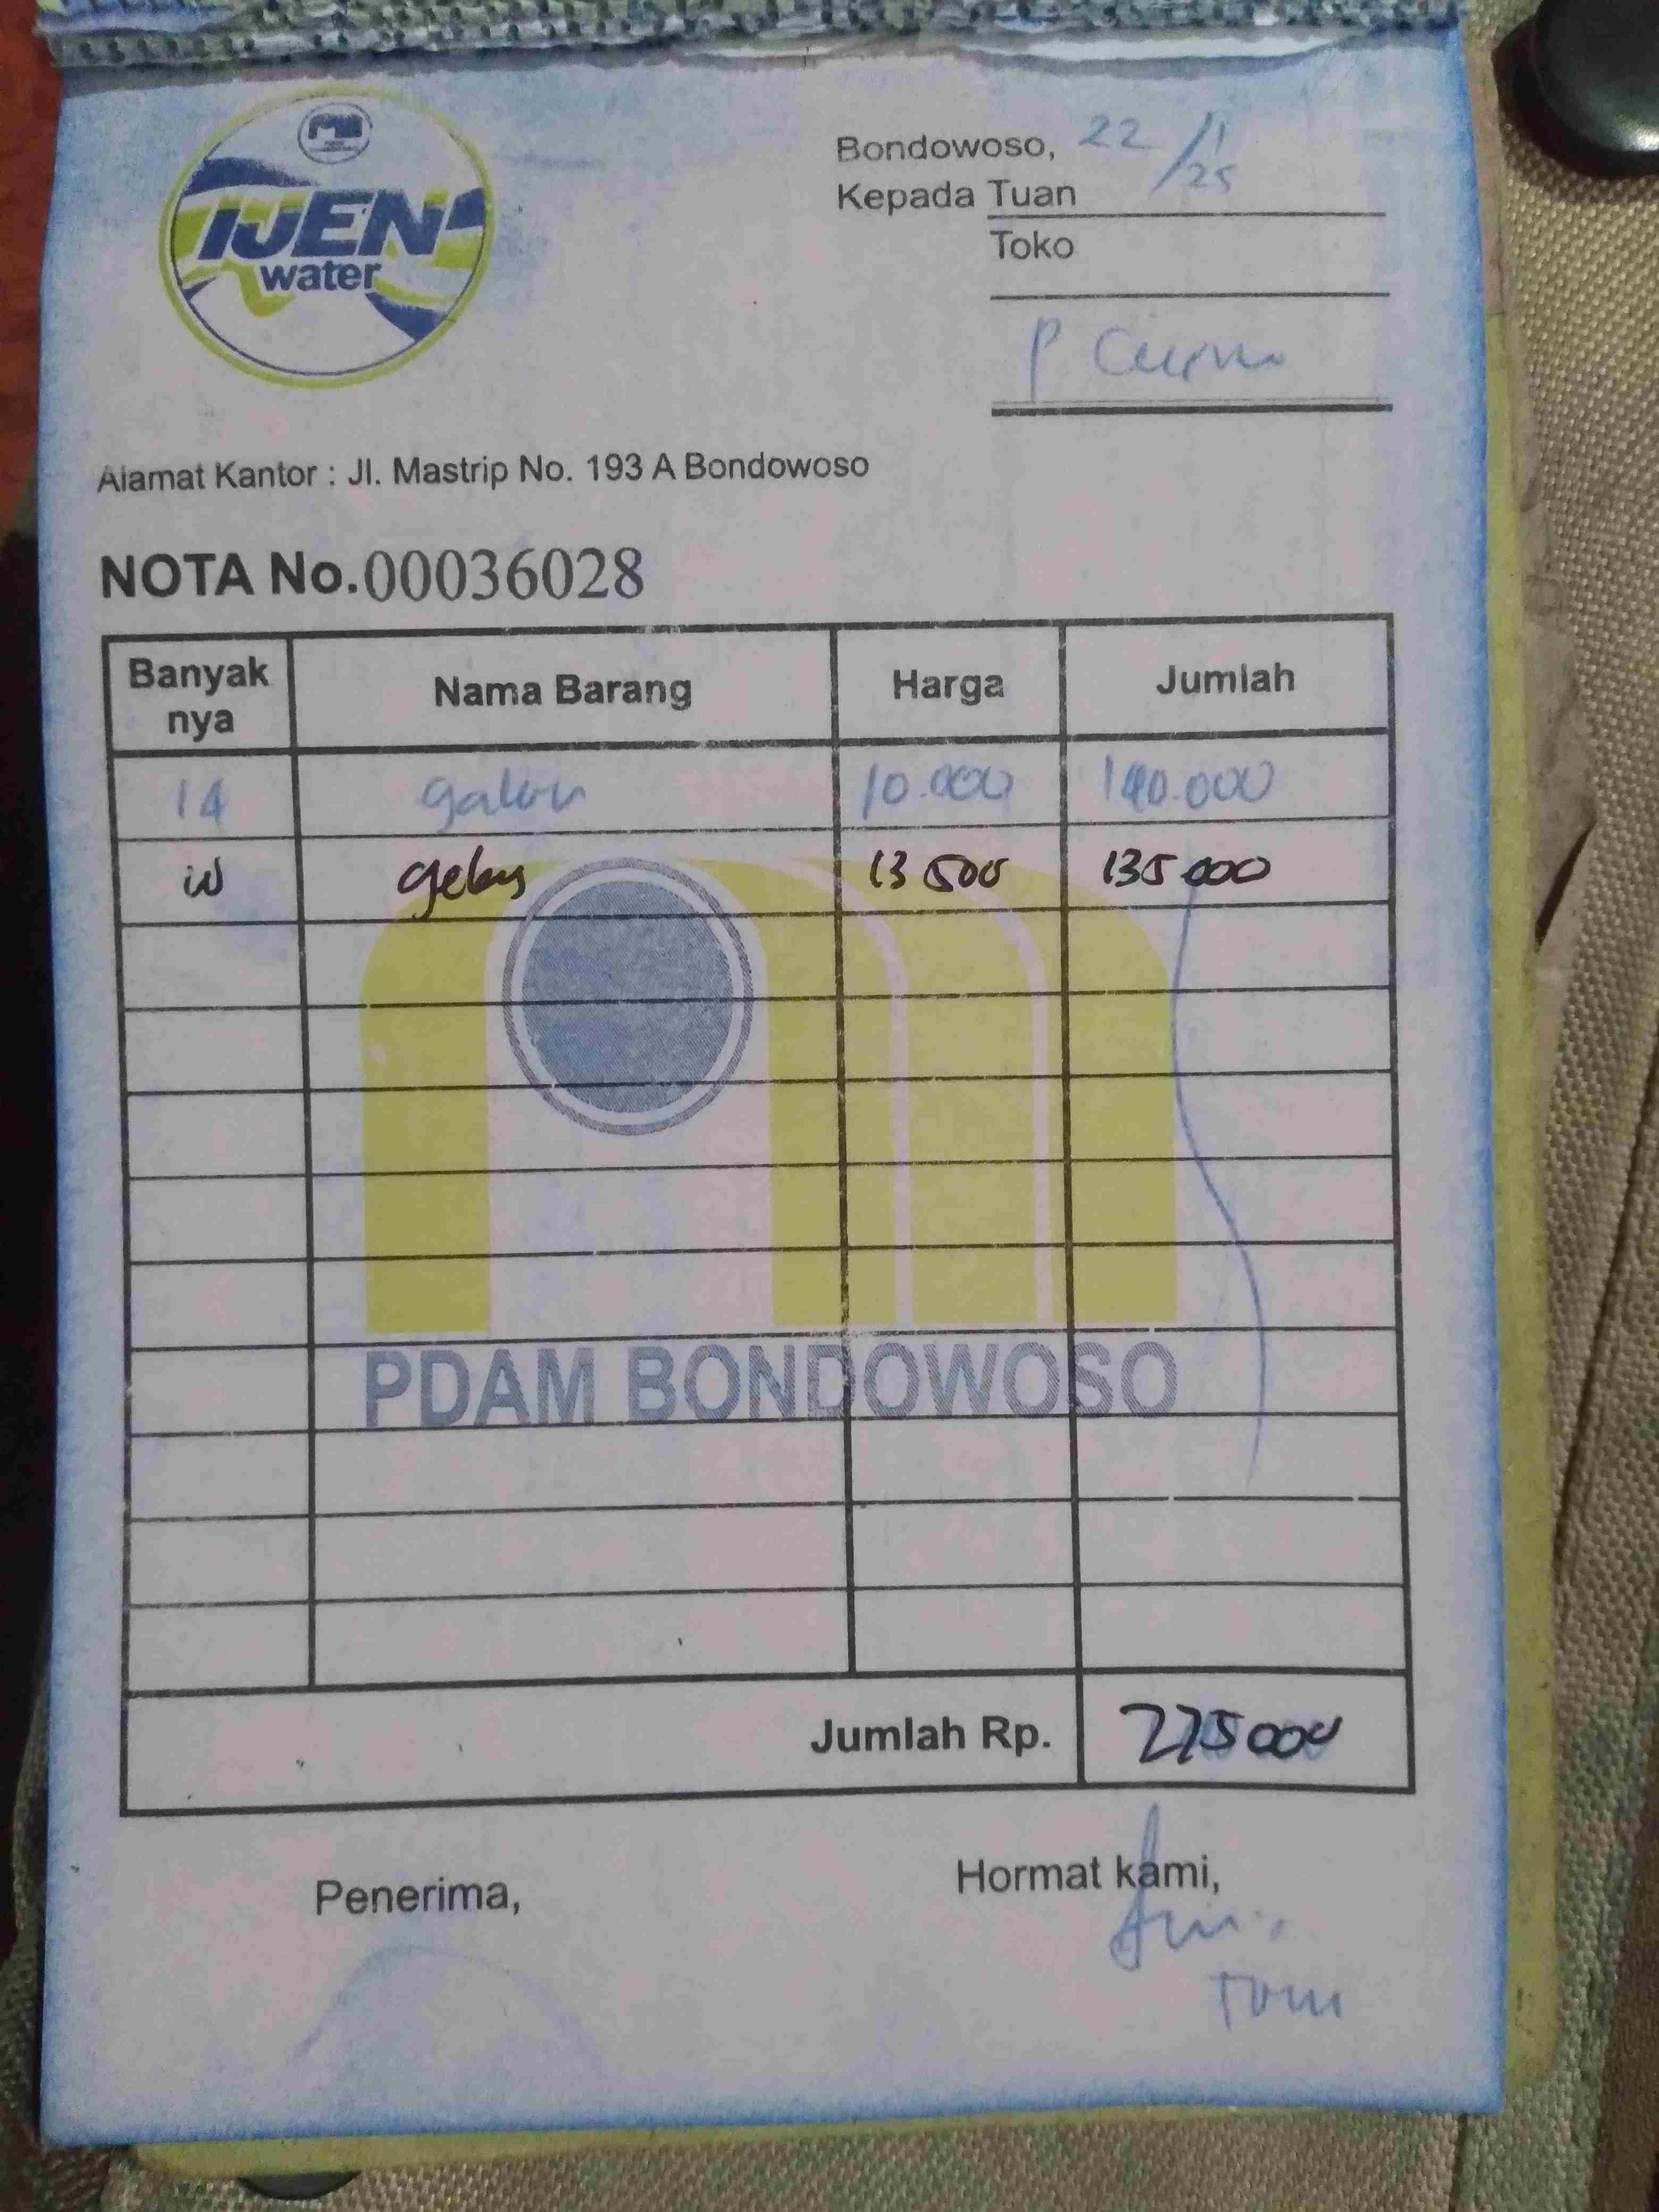 IJEN
water
Bondowoso, 22/1/25
Kepada Tuan
Toko
P
Alamat Kantor : Jl. Mastrip No. 193 A Bondowoso
NOTA No. 00036028
Banyak nya Nama Barang Harga Jumlah
14 galon 10.000 140.000
10 gelas 13 500 135 000
PDAM BONDOWOSO
Jumlah Rp. 275 000
Penerima, Hormat kami,